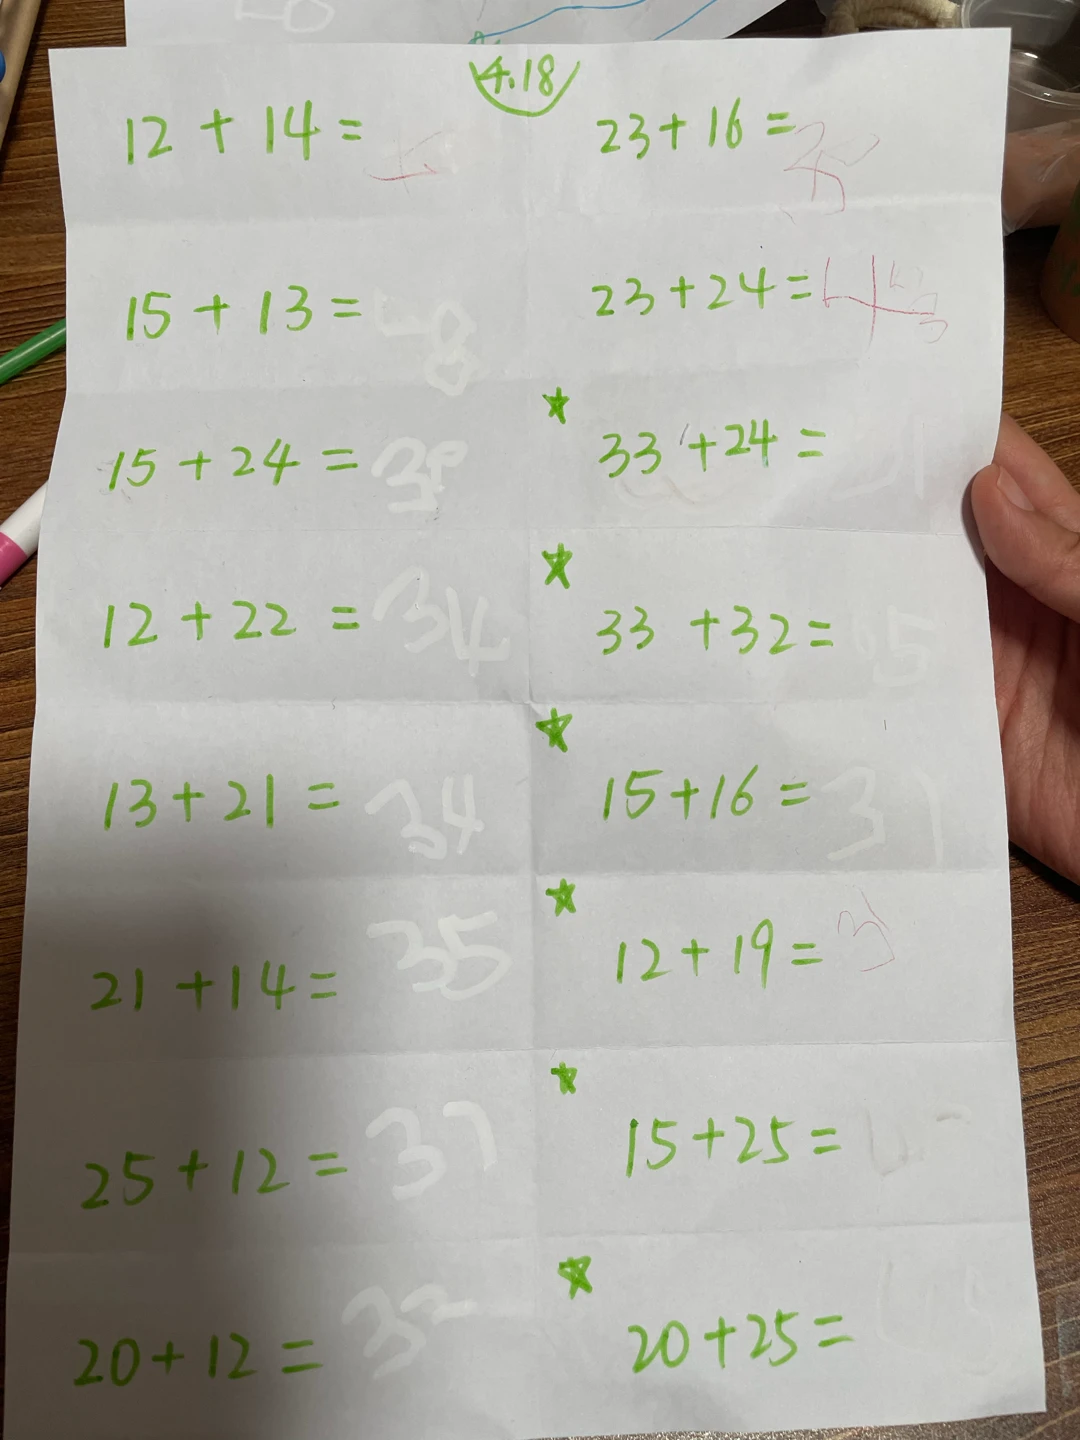 4.18
12 + 14 =
23 + 16 =
15 + 13 =
23 + 24 =
15 + 24 =
★ 33 + 24 =
12 + 22 = 34
★ 33 + 32 =
13 + 21 = 34
★ 15 + 16 = 31
21 + 14 = 35
★ 12 + 19 =
25 + 12 = 37
★ 15 + 25 =
20 + 12 = 32
★ 20 + 25 = 45